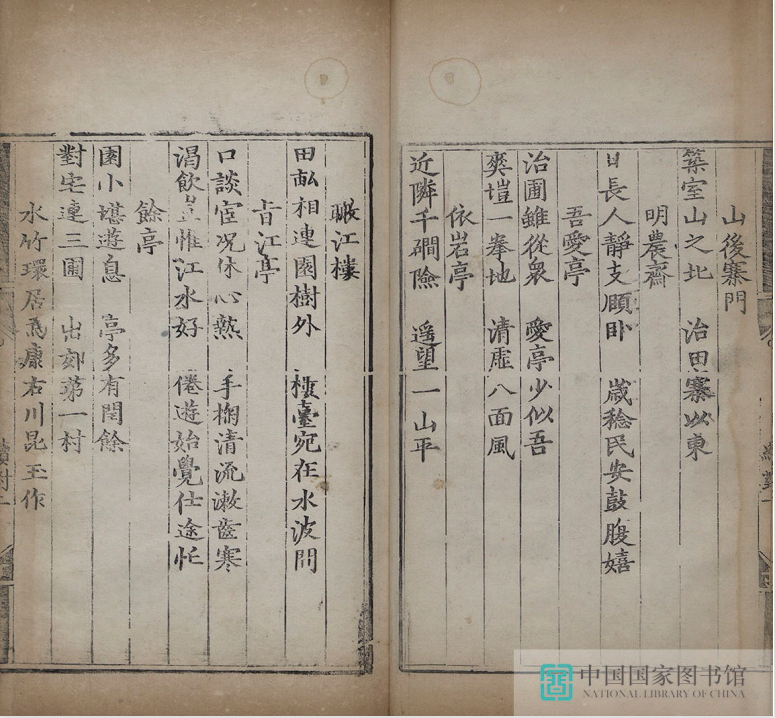 山後寨門
築室山之北 治田寨以東
明農齋
日長人靜支頤卧 歲稔民安鼓腹嬉
吾愛亭
治圃雖從衆 愛亭少似吾
爽塏一拳地 清虛八面風
依岩亭
近隣千磵險 遥望一山平
瞰江樓
田畝相連園樹外 樓臺宛在水波間
旨江亭
口談宦况休心熱 手掬清流漱齒寒
渴飲豈惟江水好 倦遊始覺仕途忙
餘亭
園小堪遊息 亭多有閒餘
對宅連三圃 出郊第一村
水竹環居爲康右川昆玉作
中国国家图书馆
NATIONAL LIBRARY OF CHINA